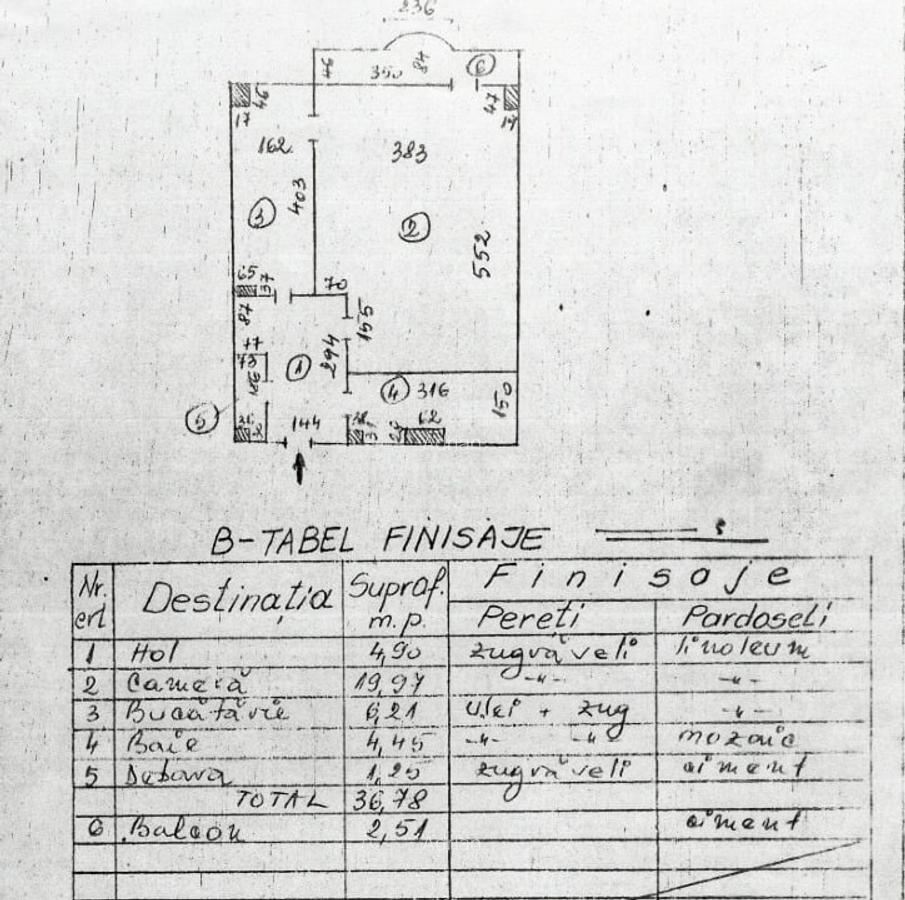 236
46 350 84 6
46 47
17 19
162 383
403
3 2
552
65 37 70
87 155
77
73 1 294
186 4 316
150
5
144 62
B-TABEL FINISAJE
Nr. crt Destinația Supraf. m.p. Finisaje
Pereți Pardoseli
1 Hol 4,90 zugrăveli linoleum
2 Cameră 19,97 -"- -"-
3 Bucătărie 6,21 ulei + zug -"-
4 Baie 4,45 -"- -"- mozaic
5 Debara 1,25 zugrăveli ciment
TOTAL 36,78
6 Balcon 2,51 ciment